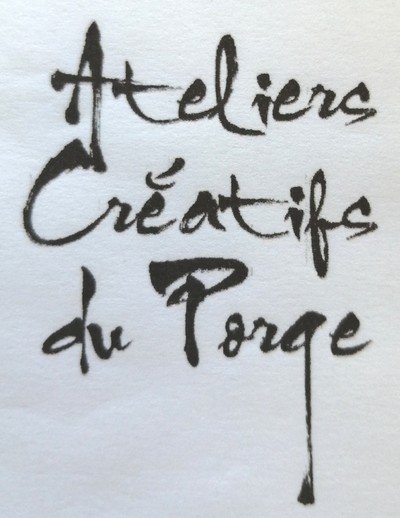 Ateliers
Créatifs
du Porge